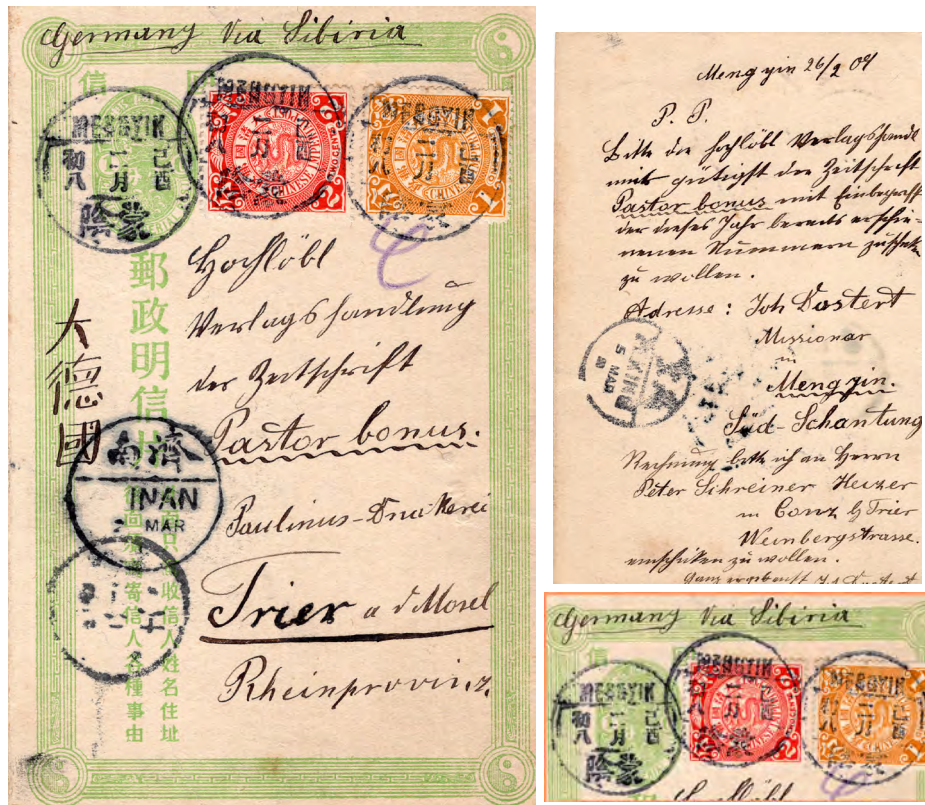 Germany Via Sibiria
信
MENGYIN
己酉
二月
初八
蒙陰
MENGYIN
己酉
二月
初八
MENGYIN
己酉
二月
CHINESE IMPERIAL
2
1
郵政明信片
大德國
Hochlöbl
Verlagshandlung
der Zeitschrift
Pastor bonus.
Paulinus-Druckerei
Trier a d Mosel
Rheinprovinz
濟南
INAN
MAR
收信人姓名住址
寄信人各種事由
Meng yin 26/2 09
P. P.
Bitte die hochlöbl Verlagshandl
mir gütigst die Zeitschrift
Pastor bonus mit Einbegriff
der dieses Jahr bereits erschie-
nenen Nummern zuschicken
zu wollen.
Adresse: Joh Dostert
Missionar
in
Mengyin.
Süd-Schantung
Rechnung bitte ich an Herrn
Peter Schreiner Heizer
in Conz b/Trier
Weinbergstrasse.
einschicken zu wollen.
5
MAR
Germany Via Sibiria
信
MENGYIN
己酉
二月
初八
蒙陰
MENGYIN
二月
MENGYIN
己酉
二月
2
1